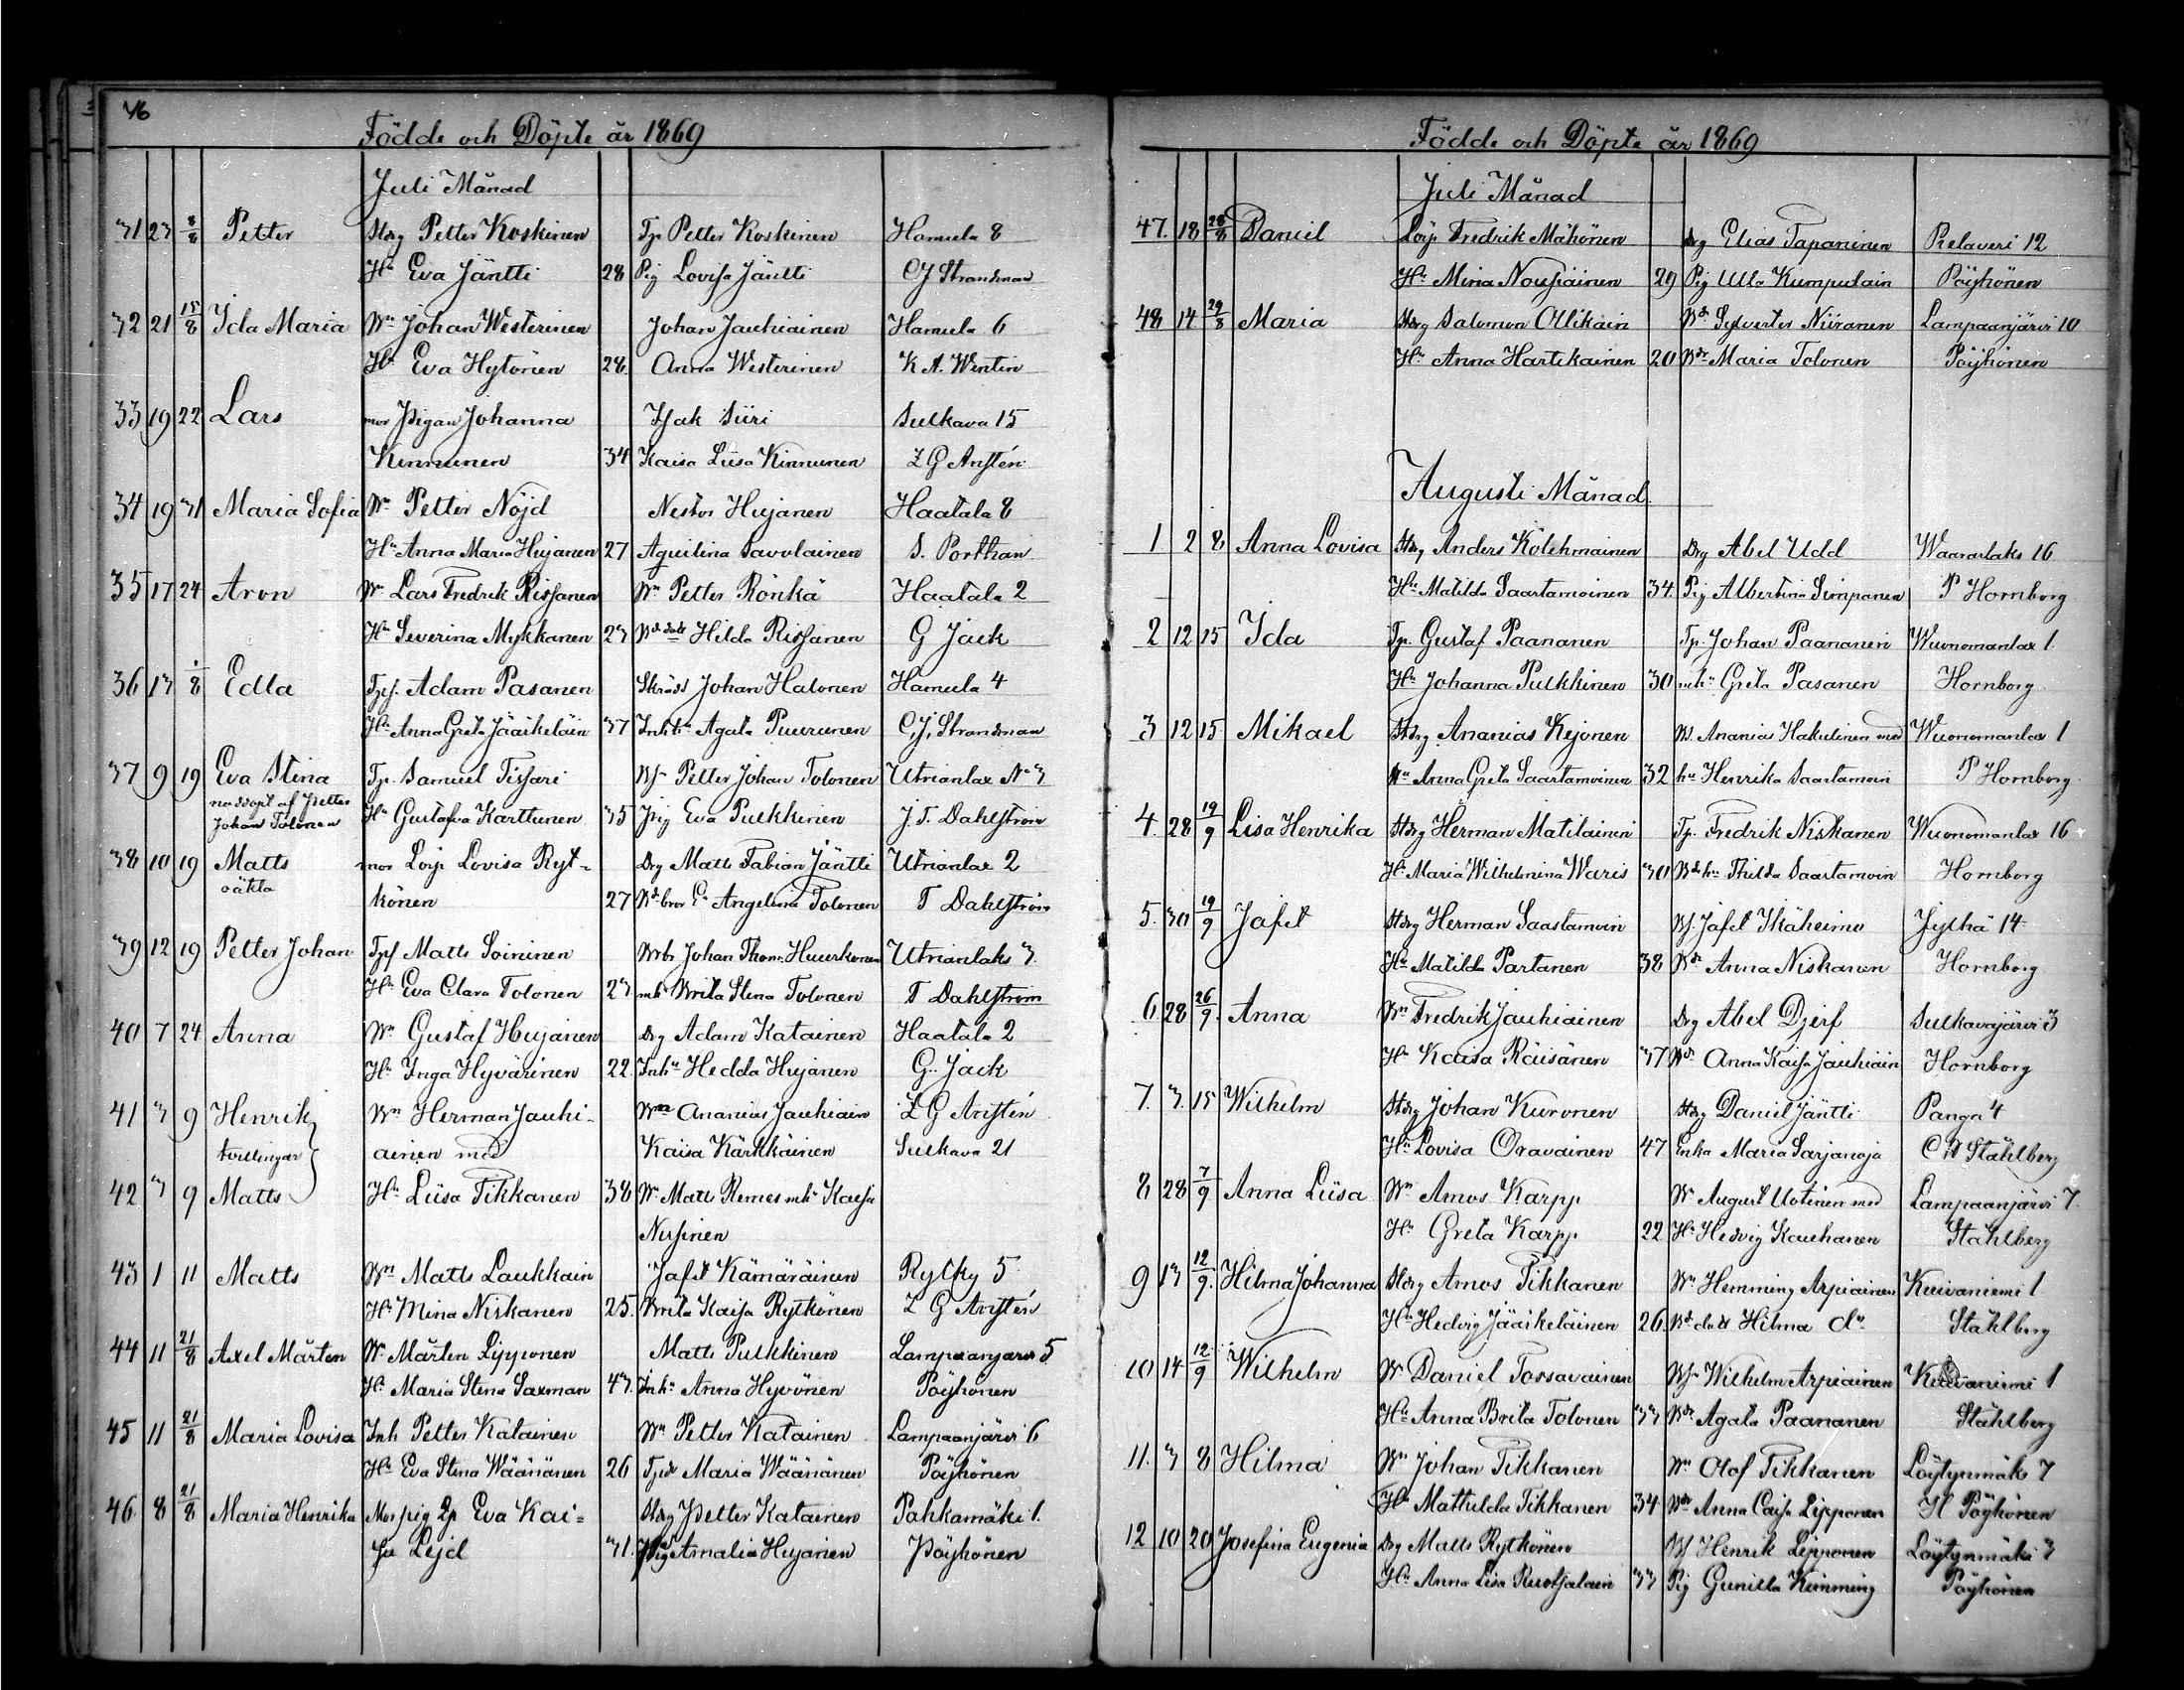 46
Födde och Döpte år 1869
Juli Månad
31 23 8/8 Petter Stdrg Petter Koskinen Tp. Petter Koskinen Hamula 8
Hu Eva Jäntti 28 Pig Lovisa Jäntti CJ Strandman
32 21 15/8 Ida Maria Bn Johan Westerinen Johan Jauhiainen Hamula 6
Hu Eva Hytönen 28. Anna Westerinen K A. Wentin
33 19 22 Lars mor Pigan Johanna Isak Siiri Sulkava 15
Kinnunen 34 Kaisa Liisa Kinnunen Z G Anstén
34 19 31 Maria Sofia Bn Petter Nöjd Nestor Hujanen Haatala 8
Hu Anna Maria Hujanen 27 Aquilina Savolainen S. Porthan
35 17 24 Aron Bn Lars Fredrik Rissanen Bn Petter Rönkä Haatala 2
Hu Severina Mykkänen 23 Bd dott Hilda Rissanen G Jack
36 13 1/8 Edla Tpf. Adam Pasanen Skrädd Johan Halonen Hamula 4
Hu Anna Greta Jääskeläin 37 Inhh Agata Puurunen C,J, Strandman
37 9 19 Eva Stina Tp. Samuel Tissari Bs Petter Johan Tolonen Utrianlax No 3
nöddöpt af Petter Johan Tolonen Hu Gustafva Karttunen 35 Pig Eva Pulkkinen J. T. Dahlström
38 10 19 Matts mor Löip Lovisa Ryt- Drg Matts Fabian Jäntti Utrianlax 2
oäkta könen 27 Bd. bror Ea Angelina Tolonen T Dahlström
39 12 19 Petter Johan Tpf Matts Soininen Brbr Johan Thom. Huuskonen Utrianlaks 3.
Hu Eva Clara Tolonen 23 mh Brita Stina Tolonen T Dahlström
40 7 24 Anna Bn Gustaf Hujanen Drg Adam Katainen Haatala 2
Hu Inga Hyvärinen 22. Inhu Hedda Hujanen G. Jack
41 3 9 Henrik Bn Herman Jauhi- Bn Ananias Jauhiain Z G Anstén
tvillingar ainen med Kaisa Kärkkäinen Sulkava 21
42 3 9 Matts Hu Liisa Tikkanen 38 Bn Matts Remes mhu Kaisa
Nissinen
43 1 11 Matts Bn Matts Laukkain Jafet Kämäräinen Rytky 5
Hu Mina Niskanen 25. Brita Kaisa Rytkönen Z G Anstén
44 11 21/8 Axel Mårten Bn Mårten Lipponen Matts Pulkkinen Lampaanjärvi 5
Hu Maria Stina Saxman 43. Inhu Anna Hyvönen Pöyhönen
45 11 21/8 Maria Lovisa Inh Petter Katainen Bn Petter Katainen Lampaanjärvi 6
Hu Eva Stina Wäänänen 26 Tpdr Maria Wäänänen Pöyhönen
46. 8 21/8 Maria Henrika Mor pig Lp Eva Kai= Stdrg Petter Katainen Pahkamäki 1.
sa Lejd 31. Pig Amalia Hujanen Pöyhönen
Födde och Döpte år 1869
Juli Månad
47. 18 28/8 Daniel Löip Fredrik Mähönen Drg Elias Tapaninen Pielaveri 12
Hu Mina Nousiainen 29 Pig Ulla Kumpulain Pöyhönen
48 14 29/8 Maria Stdrg Salomon Ollikain Bd Sylvester Niiranen Lampaanjärvi 10
Hu Anna Hartikainen 20 Bdr Maria Tolonen Pöyhönen
Augusti Månad.
1 2 8 Anna Lovisa Stdrg Anders Kolehmainen Drg Abel Udd Waaraslaks 16
Hu Matilda Saastamoinen 34. Pig Albertina Simpanen P Hornborg
2 12 15 Ida Tp. Gustaf Paananen Tp. Johan Paananen Wuonomanlax 1.
Hu Johanna Pulkkinen 30 mhu Greta Pasanen Hornborg
3 12 15 Mikael Stdrg Ananias Kejonen Bd. Ananias Hakulinen med Wuonomanlax 1
Hu Anna Greta Saastamoinen 32 hu Henrika Saastamoin P Hornborg
4. 28 19/9 Lisa Henrika Stdrg Herman Matilainen Tp. Fredrik Niskanen Wuonomanlax 16
Hu Maria Wilhelmina Waris 30 Bd hu Thilda Saastamoin Hornborg
5. 30 19/9 Jafet Stdrg Herman Saastamoin Bs. Jafet Ikäheimo Jylhä 14
Hu Matilda Partanen 38 Bdr Anna Niskanen Hornborg
6. 28 26/9 Anna Bn Fredrik Jauhiainen Drg Abel Djerf Sulkavajärvi 3
Hu Kaisa Räisänen 37 Bdr Anna Kaisa Jauhiain Hornborg
7. 3. 15 Wilhelm Stdrg Johan Kuronen Stdrg Daniel Jäntti Panga 4
Hu Lovisa Oravainen 47 Enka Maria Sarjanoja C A Ståhlberg
8 28 7/9 Anna Liisa Bn Amos Karpp Bn August Uotinen med Lampaanjärvi 7.
Hu Greta Karpp 22 Hu Hedvig Kauhanen Ståhlberg
9 13 12/9. Hilma Johanna Stdrg Amos Tikkanen Bn Hemming Arpiainen Kuivaniemi 1.
Hu Hedvig Jääskeläinen 26. Bd dott Hilma do Ståhlberg
10 14 12/9 Wilhelm Bn Daniel Tossavainen Bs Wilhelm Arpiainen Kuivaniemi 1
Hu Anna Brita Tolonen 33 Bdr Agata Paananen Ståhlberg
11. 3 8 Hilma Bn Johan Tikkanen Bn Olof Tikkanen Löytynmäki 7
Hu Mathilda Tikkanen 34. Bdr Anna Caisa Lipponen H Pöyhönen
12 10 20 Josefina Eugenia Drg Matts Rytkönen Bs Henrik Lipponen Löytynmäki 3
Hu Anna Lisa Ruotsalain 33 Pig Gunilla Kimming Pöyhönen